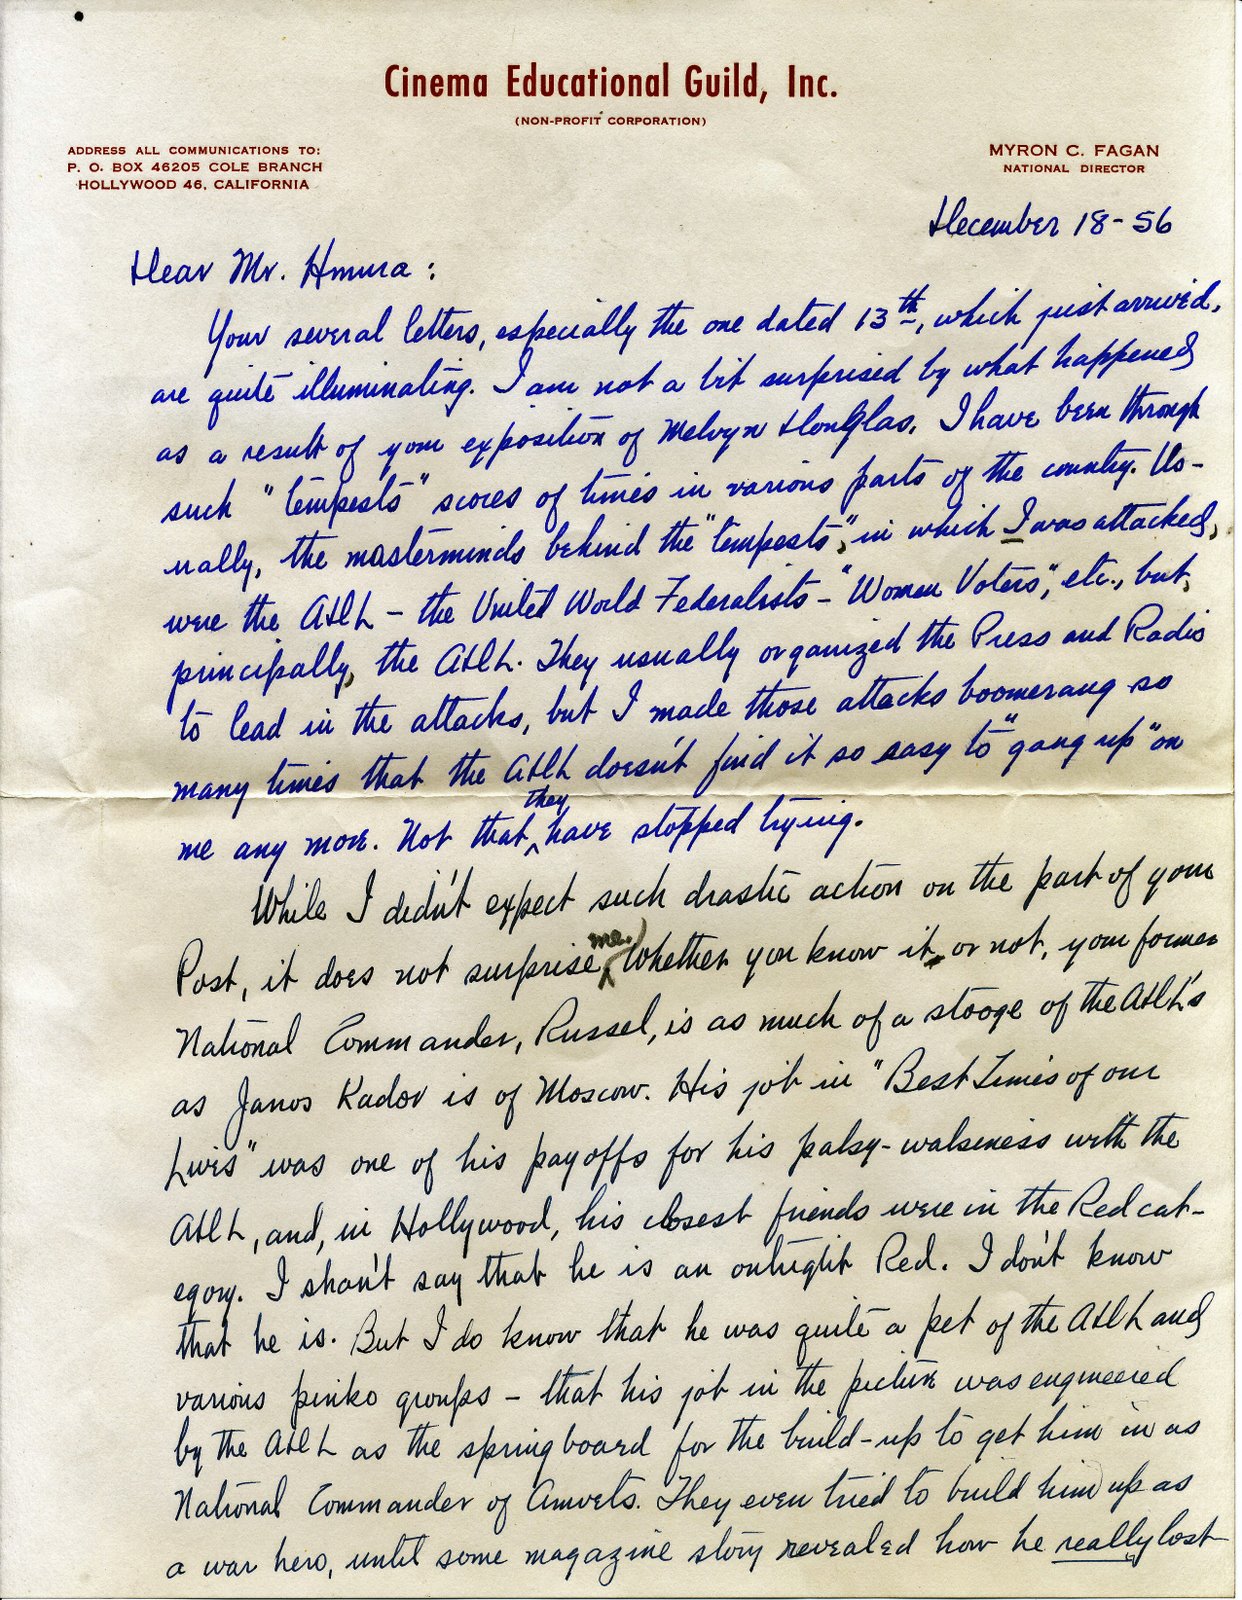 Cinema Educational Guild, Inc.
(NON-PROFIT CORPORATION)
ADDRESS ALL COMMUNICATIONS TO:
P. O. BOX 46205 COLE BRANCH
HOLLYWOOD 46, CALIFORNIA
MYRON C. FAGAN
NATIONAL DIRECTOR
December 18-56
Dear Mr. Hmura:
Your several letters, especially the one dated 13th, which just arrived,
are quite illuminating. I am not a bit surprised by what happened
as a result of your exposition of Melvyn Douglas. I have been through
such "tempests" scores of times in various parts of the country. Us-
ually, the masterminds behind the "tempests", in which I was attacked,
were the ADL - the United World Federalists - "Women Voters", etc., but,
principally, the ADL. They usually organized the Press and Radio
to lead in the attacks, but I made those attacks boomerang so
many times that the ADL doesn't find it so easy to "gang up" on
me any more. Not that they have stopped trying.
While I didn't expect such drastic action on the part of your
Post, it does not surprise me. Whether you know it or not, your former
National Commander, Russel, is as much of a stooge of the ADL's
as Janos Kador is of Moscow. His job in "Best Times of our
Lives" was one of his payoffs for his palsy-walseness with the
ADL, and, in Hollywood, his closest friends were in the Red cat-
egory. I shan't say that he is an outright Red. I don't know
that he is. But I do know that he was quite a pet of the ADL and
various pinko groups - that his job in the picture was engineered
by the ADL as the springboard for the build-up to get him in as
National Commander of Amvets. They even tried to build him up as
a war hero, until some magazine story revealed how he really lost